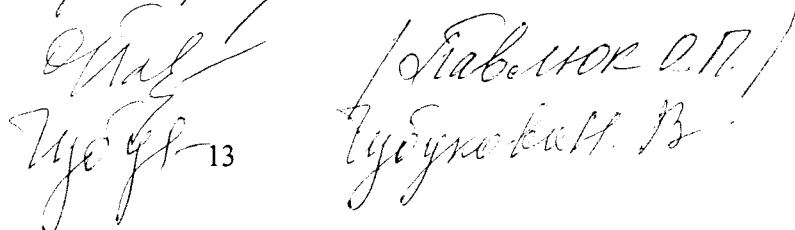 / Павлюк О.П. /
13 Чубукова Н. В